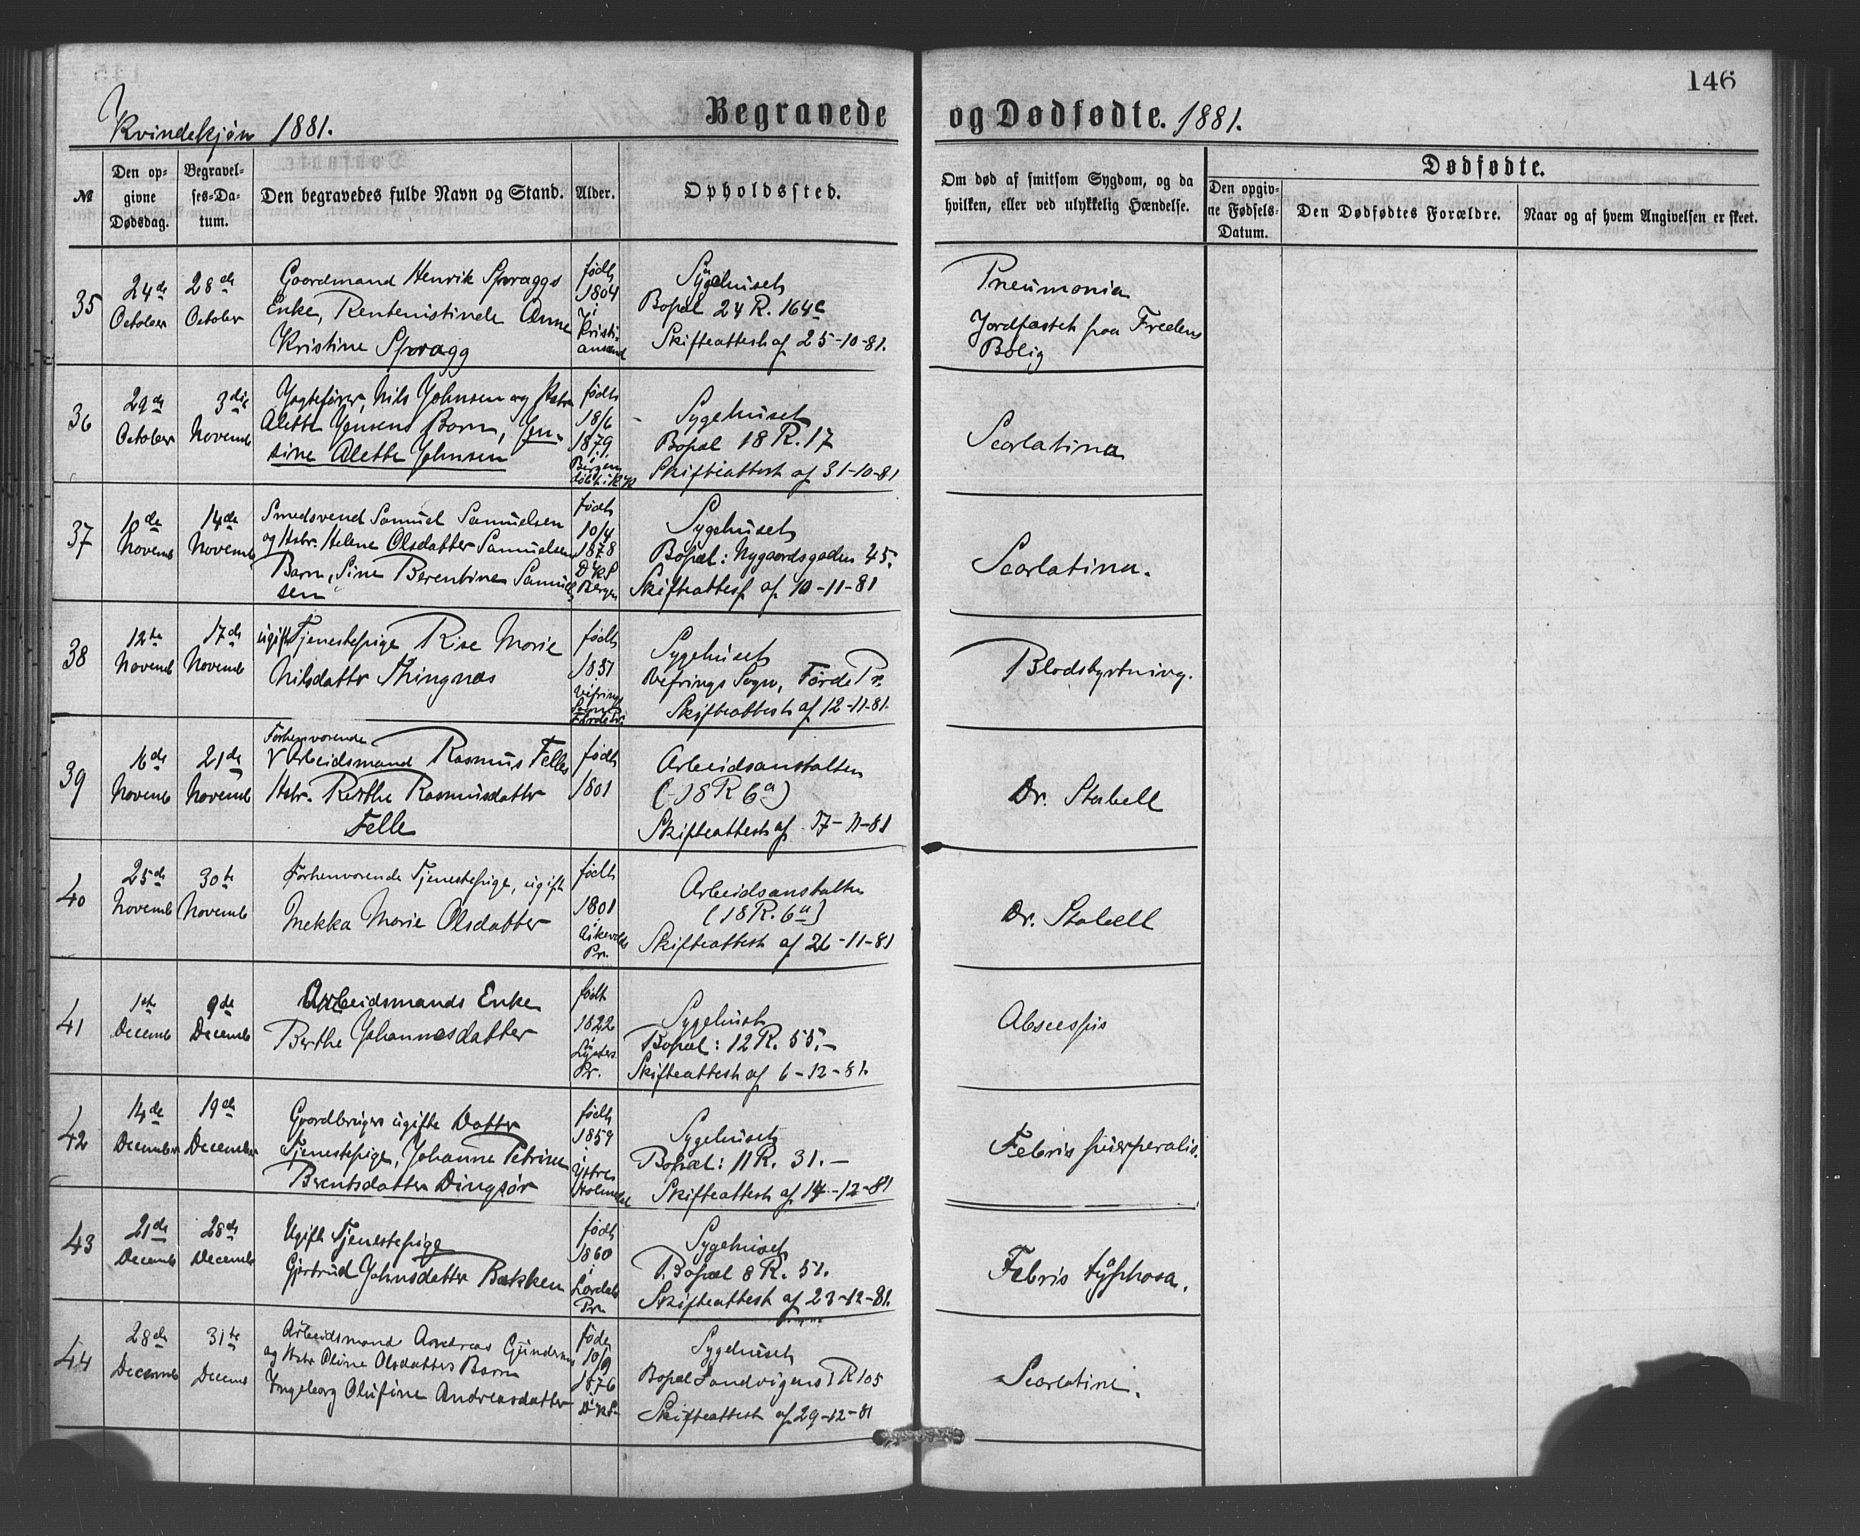 146
Kvindekjøn 1881.
Begravede og Dødfødte. 1881.
№
Den opgivne Dødsdag.
Begravelses-Datum.
Den begravedes fulde Navn og Stand.
Alder.
Opholdssted.
Om død af smitsom Sygdom, og da hvilken, eller ved ulykkelig Hændelse.
Dødfødte.
Den opgivne Fødsels-Datum.
Den Dødfødtes Forældre.
Naar og af hvem Angivelsen er skeet.
35
24de October
28de October
Gaardmand Henrik Spraggs
Enke, Rentenistinde Anne
Kristine Spragg
født 1804 i Kristiansand
Sygehuset
Bopæl 24 R. 164c
Skifteattest af 25-10-81.
Pneumonia
Jordfæstet paa Fredens
Bolig
36
29de October
3die Novemb
Jagtefører, Nils Johnsen og Hstr
Alette Jensens Barn, Jen-
sine Alette Johnsen
født 18/6 1879 i Bergen
Sygehuset
Bopæl 18 R. 17
Skifteattest af 31-10-81
Scarlatina
37
10de Novemb
14de Novemb
Smedsvend Samuel Samuelsen
og Hstr. Helene Olsdatter Samuelsens
Barn, Sine Berentine Samuel-
sen
født 10/4 1878 DKS Bergen
Sygehuset
Bopæl: Nygaardsgaden 45.
Skifteattest af 10-11-81
Scarlatina.
38
12te Novemb
17de Novemb
ugift Tjenestepige Rise Marie
Nilsdatter Thingnæs
født 1851 Vefrings Sogn Førde Pr.
Sygehuset
Vefrings Sogn, Førde Pr.
Skifteattest af 12-11-81.
Blodstyrtning.
39
16de Novemb
21de Novemb
Forhenværende
Arbeidsmand Rasmus Felles
Hstr. Berthe Rasmusdatter
Felle
født 1801
Arbeidsanstalten
(18 R 6a)
Skifteattest af 17-11-81
Dr. Stabell
40
25de Novemb
30te Novemb
Forhenværende Tjenestepige, ugift
Mekka Marie Olsdatter
født 1801 i Askevolds Pr.
Arbeidsanstalten
(18 R. 6a)
Skifteattest af 26-11-81
Dr. Stabell
41
1ste Decemb
9de Decemb
Arbeidsmands Enke
Berthe Johannesdatter
født 1822 Lysters Pr.
Sygehuset
Bopæl: 12 R. 55.-
Skifteattest af 6-12-81.
Abscessus
42
14de December
19de December
Gaardbrugers ugifte Datter
Tjenestepige, Johanne Petrine
Berentsdatter Dingsør
født 1859 i Ytre Holmedal
Sygehuset
Bopæl: 11 R. 31.-
Skifteattest af 14-12-81
Febris puerperalis.
43
21de Decemb
28de Decemb
Ugift Tjenestepige
Gjertrud Johnsdatter Bakken
født 1860 i Lærdals Pr.
Sygehuset
Bopæl 8 R. 51.
Skifteattest af 23-12-81.
Febris typhosa.
44
28de Decemb
31te Decemb
Arbeidsmand Andreas Gundersens
og Hstr Oline Olsdatters Barn
Ingeborg Olufine Andreasdatter
føde 10/9 1876 DKS
Sygehuset
Bopæl Sandvigens R 105
Skifteattest af 29-12-81
Scarlatina.